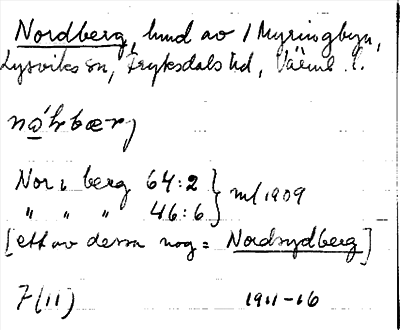 Nordberg, lund av / Myringbyn,
Lysviks sn, Fryksdals hd, Värml. l.
nǻhrbærj
Norr berg 64:2 } ml 1909
" " " 46:6
[ett av dessa nog = Nordsydberg]
7(11) 1911-16